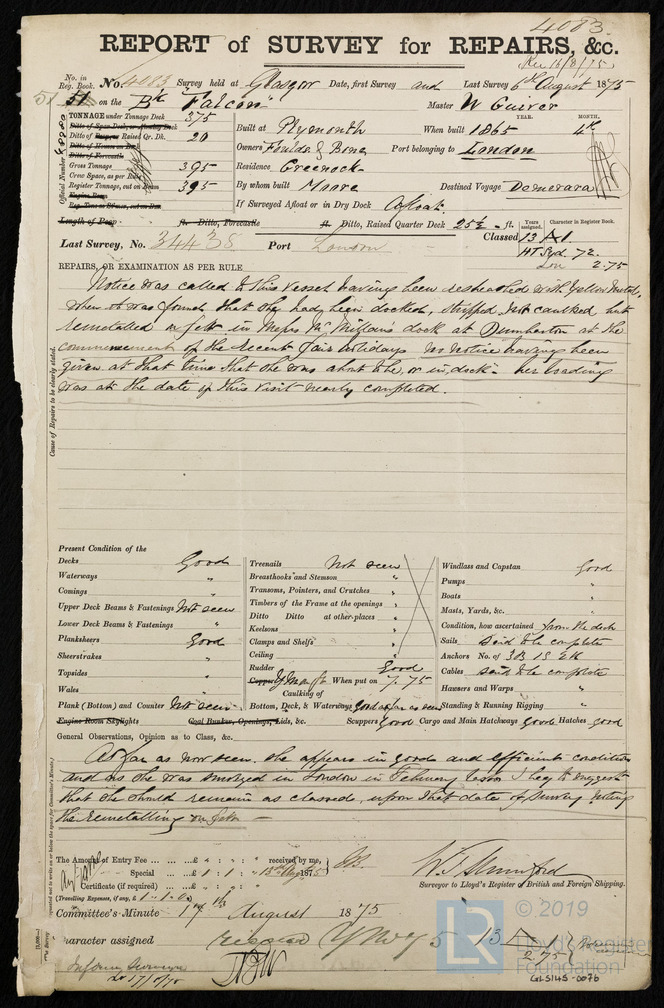 4083.
REPORT of SURVEY for REPAIRS, &c.
Rec 16/8/75
No. in Reg. Book. No. 4083 Survey held at Glasgow Date, first Survey and Last Survey 6th August 1875
51 on the Bk "Falcon" Master W Guiver
TONNAGE under Tonnage Deck 375
Ditto of Spar Deck, or Awning Deck
Ditto of Poop, or Raised Qr. Dk. 20
Ditto of Houses on Deck
Ditto of Forecastle
Gross Tonnage 395
Crew Space, as per Rule
Register Tonnage, cut on Beam 395
Engine Room
Reg. Tons as Steamer, cut on Bm.
Official Number
YEAR. MONTH.
Built at Plymouth When built 1865 4th
Owners Foulds & Bone Port belonging to London
Residence Greenock
By whom built Moore Destined Voyage Demerara
If Surveyed Afloat or in Dry Dock Afloat.
Length of Poop ft. Ditto, Forecastle ft. Ditto, Raised Quarter Deck 25½ ft.
Years assigned. Character in Register Book.
Last Survey, No. 34438 Port London Classed 13 A 1.
HT Syd. 72.
Lon 2.75
REPAIRS, OR EXAMINATION AS PER RULE
Notice was called to this vessel having been resheathed with Yellow Metal,
when it was found that she had been docked, stripped, not caulked but
remetalled on felt in Messrs McMillan's dock at Dumbarton at the
commencement of the recent fair holidays no notice having been
given at that time that she was about to be, or in dock. her loading
was at the date of this visit nearly completed.
Cause of Repairs to be clearly stated.
Present Condition of the
Decks Good
Waterways "
Comings "
Upper Deck Beams & Fastenings Not seen
Lower Deck Beams & Fastenings "
Planksheers Good
Sheerstrakes "
Topsides "
Wales "
Plank (Bottom) and Counter Not seen
Engine Room Skylights Coal Bunker, Openings, Lids, &c.
Treenails Not seen
Breasthooks and Stemson "
Transoms, Pointers, and Crutches "
Timbers of the Frame at the openings "
Ditto Ditto at other places "
Keelsons "
Clamps and Shelfs "
Ceiling "
Rudder Good
Copper Y M on ft When put on 7.75
Caulking of
Bottom, Deck, & Waterways Good as far as seen
Scuppers Good Cargo and Main Hatchways Good Hatches good
Windlass and Capstan Good
Pumps "
Boats "
Masts, Yards, &c. "
Condition, how ascertained from the deck
Sails said to be complete
Anchors No. of 3B 1S 2K
Cables said to be complete
Hawsers and Warps "
Standing & Running Rigging "
General Observations, Opinion as to Class, &c.
As far as now seen, she appears in good and efficient condition
and as she was surveyed in London in February last I beg to suggest
that she should remain as classed, upon that date of survey noting
the remetalling on felt
The Amount of Entry Fee £ : : received by me,
Special £ 1 : 1 : 13th Aug 1875
Certificate (if required) £ : :
(Travelling Expenses, if any, £ 1-1-0)
W. T. Mumford
Surveyor to Lloyd's Register of British and Foreign Shipping.
Committee's Minute 17th August 1875
Character assigned YM 75 13 A 1
2.75
Inform Surveyor
17/8/75
LR
© 2019
Lloyd's Register
Foundation
GLS145-0076